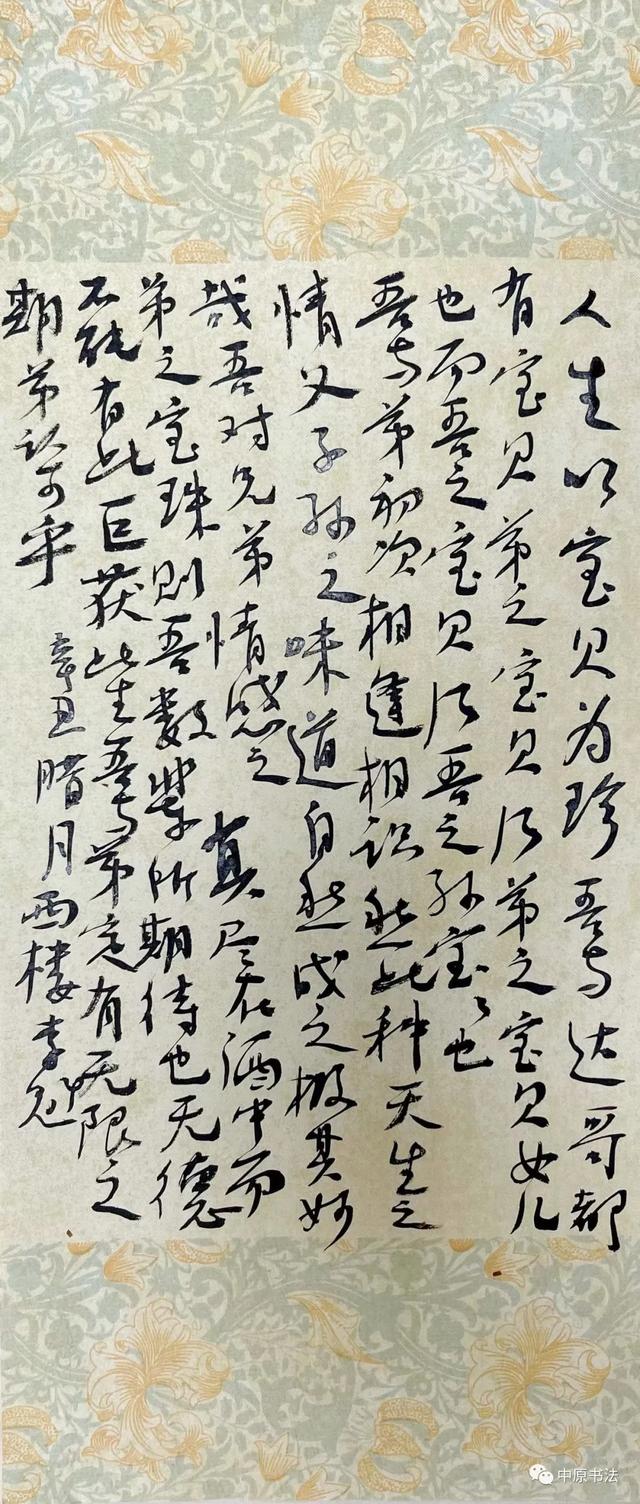 人生以宝贝为珍吾与达哥都
有宝贝弟之宝贝乃弟之宝贝女儿
也而吾之宝贝乃吾之孙宝宝也
吾与弟初次相逢相识然此种天生之
情父子孙之味道自然成之极其妙
哉吾对兄弟情感之真尽在酒中而
弟之宝珠则吾数学所期待也无德
不能有此巨获此生吾与弟定有无限之
期弟认可乎
辛丑腊月西楼李冠
中原书法